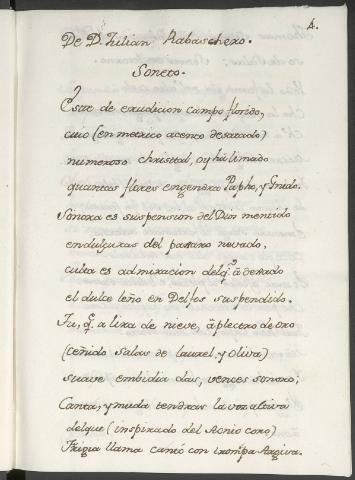 4.
De D. Julian Rabaschero.
Soneto.
Este de erudicion campo florido,
cuio (en metrico acento desatado)
numeroso christtal, oy há limado
quantas flores engendra Papho, y Gnido.
Sonora es suspension del Dios mentido
endulzuras del paxaro nevado,
culta es admiracion del q.e à dexado
el dulce leño en Delfos suspendido.
Tu, q.e a lira de nieve, à plectro de oro
(ceñido salas de laurel, y oliva)
suave embidia das, vences sonoro;
Canta, y muda tendras la voz altiva
del que (inspirado del Aonio coro)
Frigia llama cantó con trompa Argiva.